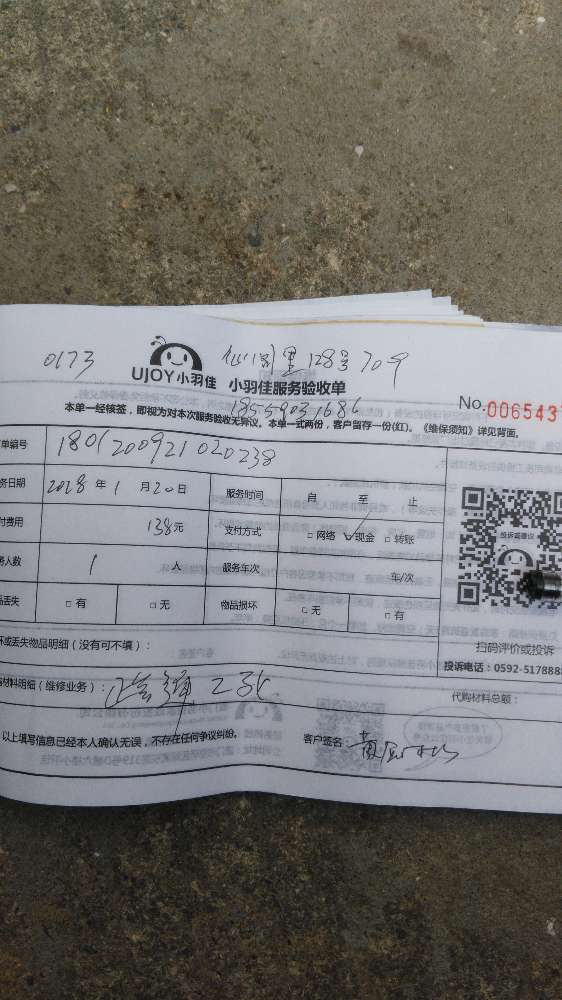 0173
128号709
UJOY小羽佳 小羽佳服务验收单
18559031686
No.006543
本单一经核签，即视为对本次服务验收无异议。本单一式两份，客户留存一份(红)。《维保须知》详见背面。
单编号 1801200921020238
务日期 2018 年 1 月 20 日 服务时间 自 至 止
付费用 138元 支付方式 □网络 ☑现金 □转账
务人数 1 人 服务车次 车/次
品丢失 □有 □无 物品损坏 □无 □有
投诉或建议
扫码评价或投诉
投诉电话：0592-517888
坏或丢失物品明细（没有可不填）：
材料明细（维修业务）：
代购材料总额：
以上填写信息已经本人确认无误，不存在任何争议纠纷。 客户签名：